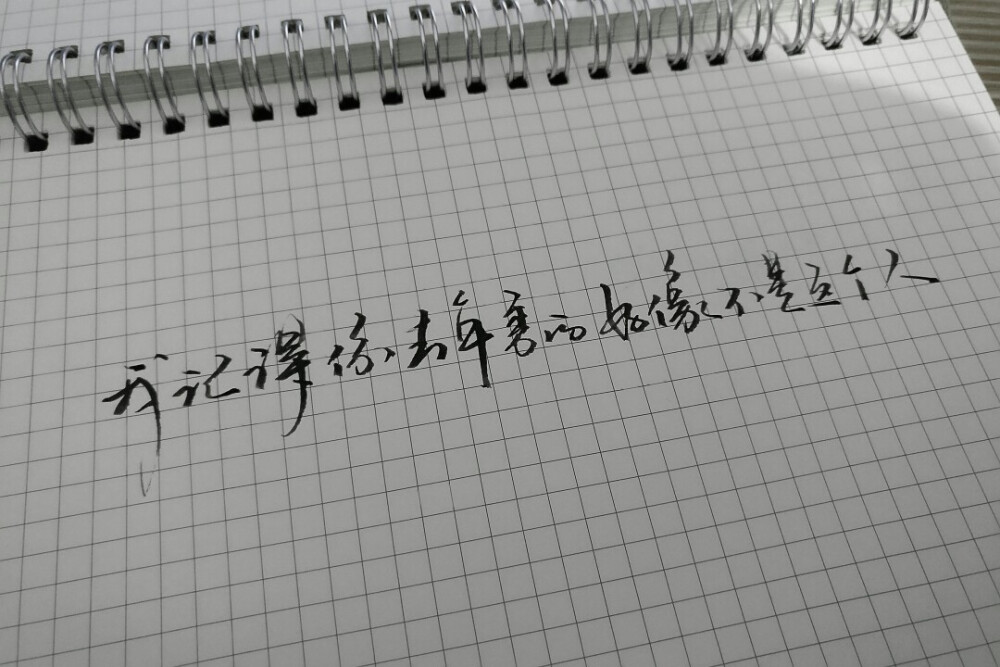 我记得你去年喜的好像不是这个人